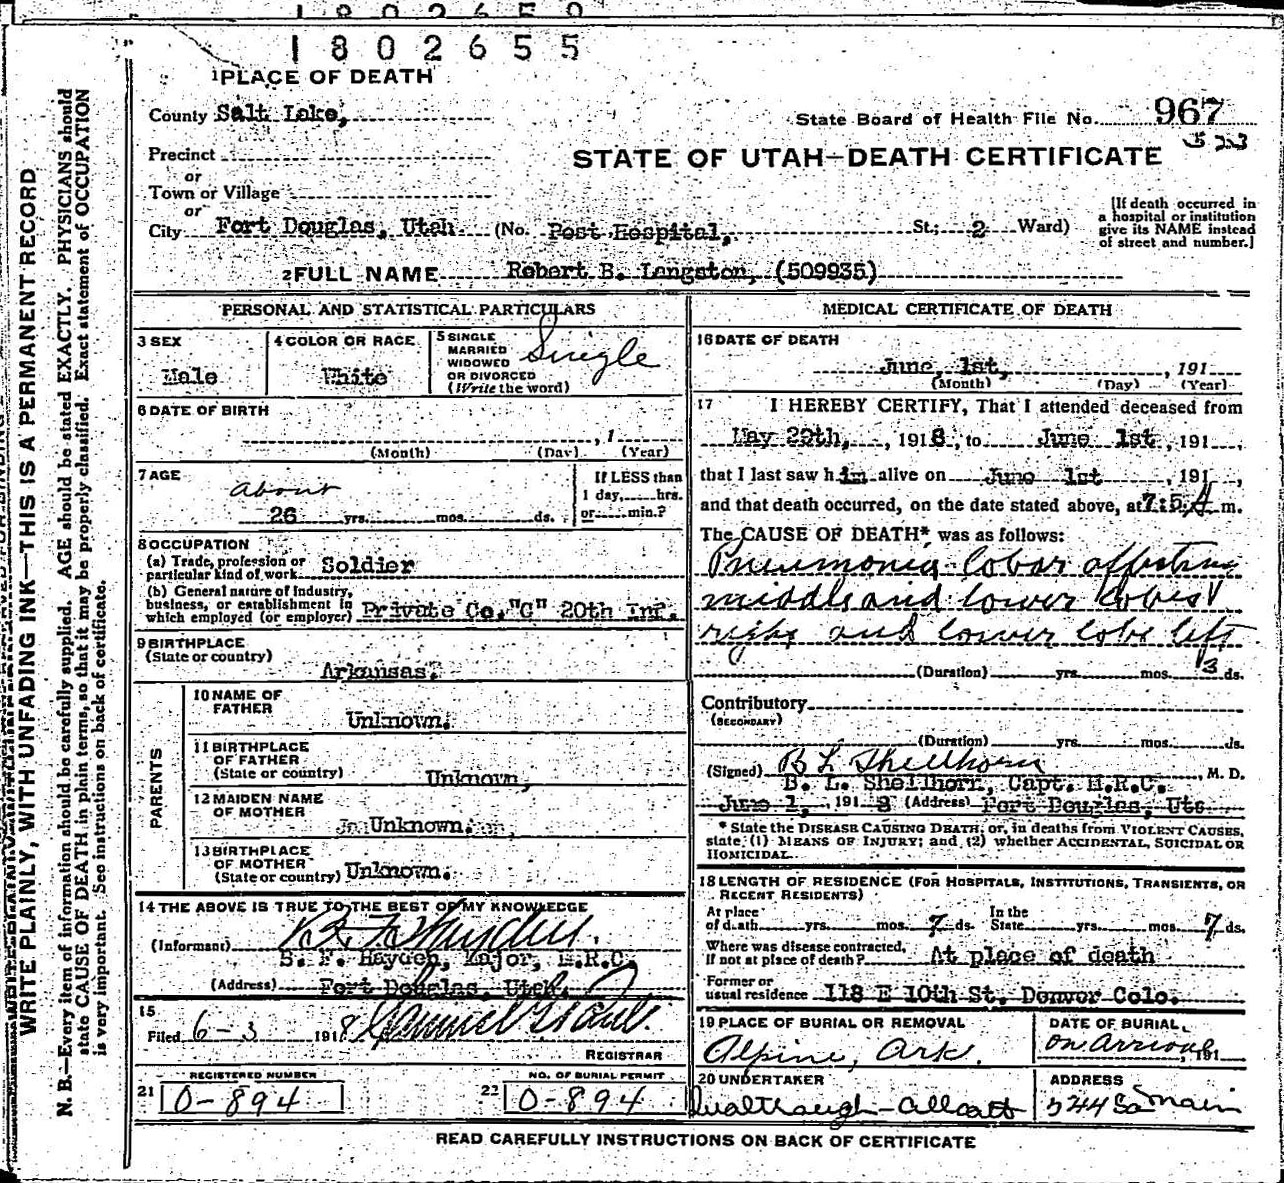 1802655
1 PLACE OF DEATH
County Salt Lake,
State Board of Health File No. 967
Precinct
or
STATE OF UTAH—DEATH CERTIFICATE
Town or Village
or
City Fort Douglas, Utah (No. Post Hospital, St.; 2 Ward)
[If death occurred in
a hospital or institution
give its NAME instead
of street and number.]
2 FULL NAME Robert B. Langston, (509935)
PERSONAL AND STATISTICAL PARTICULARS
3 SEX
Male
4 COLOR OR RACE
White
5 SINGLE
MARRIED
WIDOWED
OR DIVORCED
(Write the word)
Single
6 DATE OF BIRTH
, 1
(Month) (Day) (Year)
7 AGE
about
26 yrs. mos. ds.
If LESS than
1 day, hrs.
or min.?
8 OCCUPATION
(a) Trade, profession or
particular kind of work Soldier
(b) General nature of Industry,
business, or establishment in
which employed (or employer) Private Co. "C" 20th Inf.
9 BIRTHPLACE
(State or country)
Arkansas.
PARENTS
10 NAME OF
FATHER
Unknown.
11 BIRTHPLACE
OF FATHER
(State or country) Unknown,
12 MAIDEN NAME
OF MOTHER
Unknown.
13 BIRTHPLACE
OF MOTHER
(State or country) Unknown.
14 THE ABOVE IS TRUE TO THE BEST OF MY KNOWLEDGE
(Informant)
Hayden, Major, M.R.C.
(Address) Fort Douglas, Utah.
15
Filed 6-3 1918 Samuel
REGISTRAR
REGISTERED NUMBER
21 0-894
NO. OF BURIAL PERMIT
22 0-894
MEDICAL CERTIFICATE OF DEATH
16 DATE OF DEATH
June, 1st, , 191
(Month) (Day) (Year)
17 I HEREBY CERTIFY, That I attended deceased from
May 29th, , 1918, to June 1st, 191 ,
that I last saw him alive on June 1st , 191 ,
and that death occurred, on the date stated above, at m.
The CAUSE OF DEATH* was as follows:
Pneumonia lobar affecting
middle and lower lobes
right and lower lobe left
(Duration) yrs. mos. 3 ds.
Contributory
(SECONDARY)
(Duration) yrs. mos. ds.
(Signed) B L Shellhorn , M. D.
B. L. Shellhorn, Capt. M.R.C.
June 1, 1918 (Address) Fort Douglas, Uta
* State the DISEASE CAUSING DEATH, or, in deaths from VIOLENT CAUSES,
state (1) MEANS OF INJURY; and (2) whether ACCIDENTAL, SUICIDAL OR
HOMICIDAL.
18 LENGTH OF RESIDENCE (FOR HOSPITALS, INSTITUTIONS, TRANSIENTS, OR
RECENT RESIDENTS)
At place
of death yrs. mos. 7 ds.
In the
State yrs. mos 7 ds.
Where was disease contracted,
if not at place of death? At place of death
Former or
usual residence 118 E 10th St. Denver Colo.
19 PLACE OF BURIAL OR REMOVAL
Alpine, Ark.
DATE OF BURIAL
on arrival, 191
20 UNDERTAKER
ADDRESS
244 So Main
READ CAREFULLY INSTRUCTIONS ON BACK OF CERTIFICATE
WRITE PLAINLY, WITH UNFADING INK—THIS IS A PERMANENT RECORD
N. B.—Every item of information should be carefully supplied. AGE should be stated EXACTLY. PHYSICIANS should
state CAUSE OF DEATH in plain terms, so that it may be properly classified. Exact statement of OCCUPATION
is very important. See instructions on back of certificate.